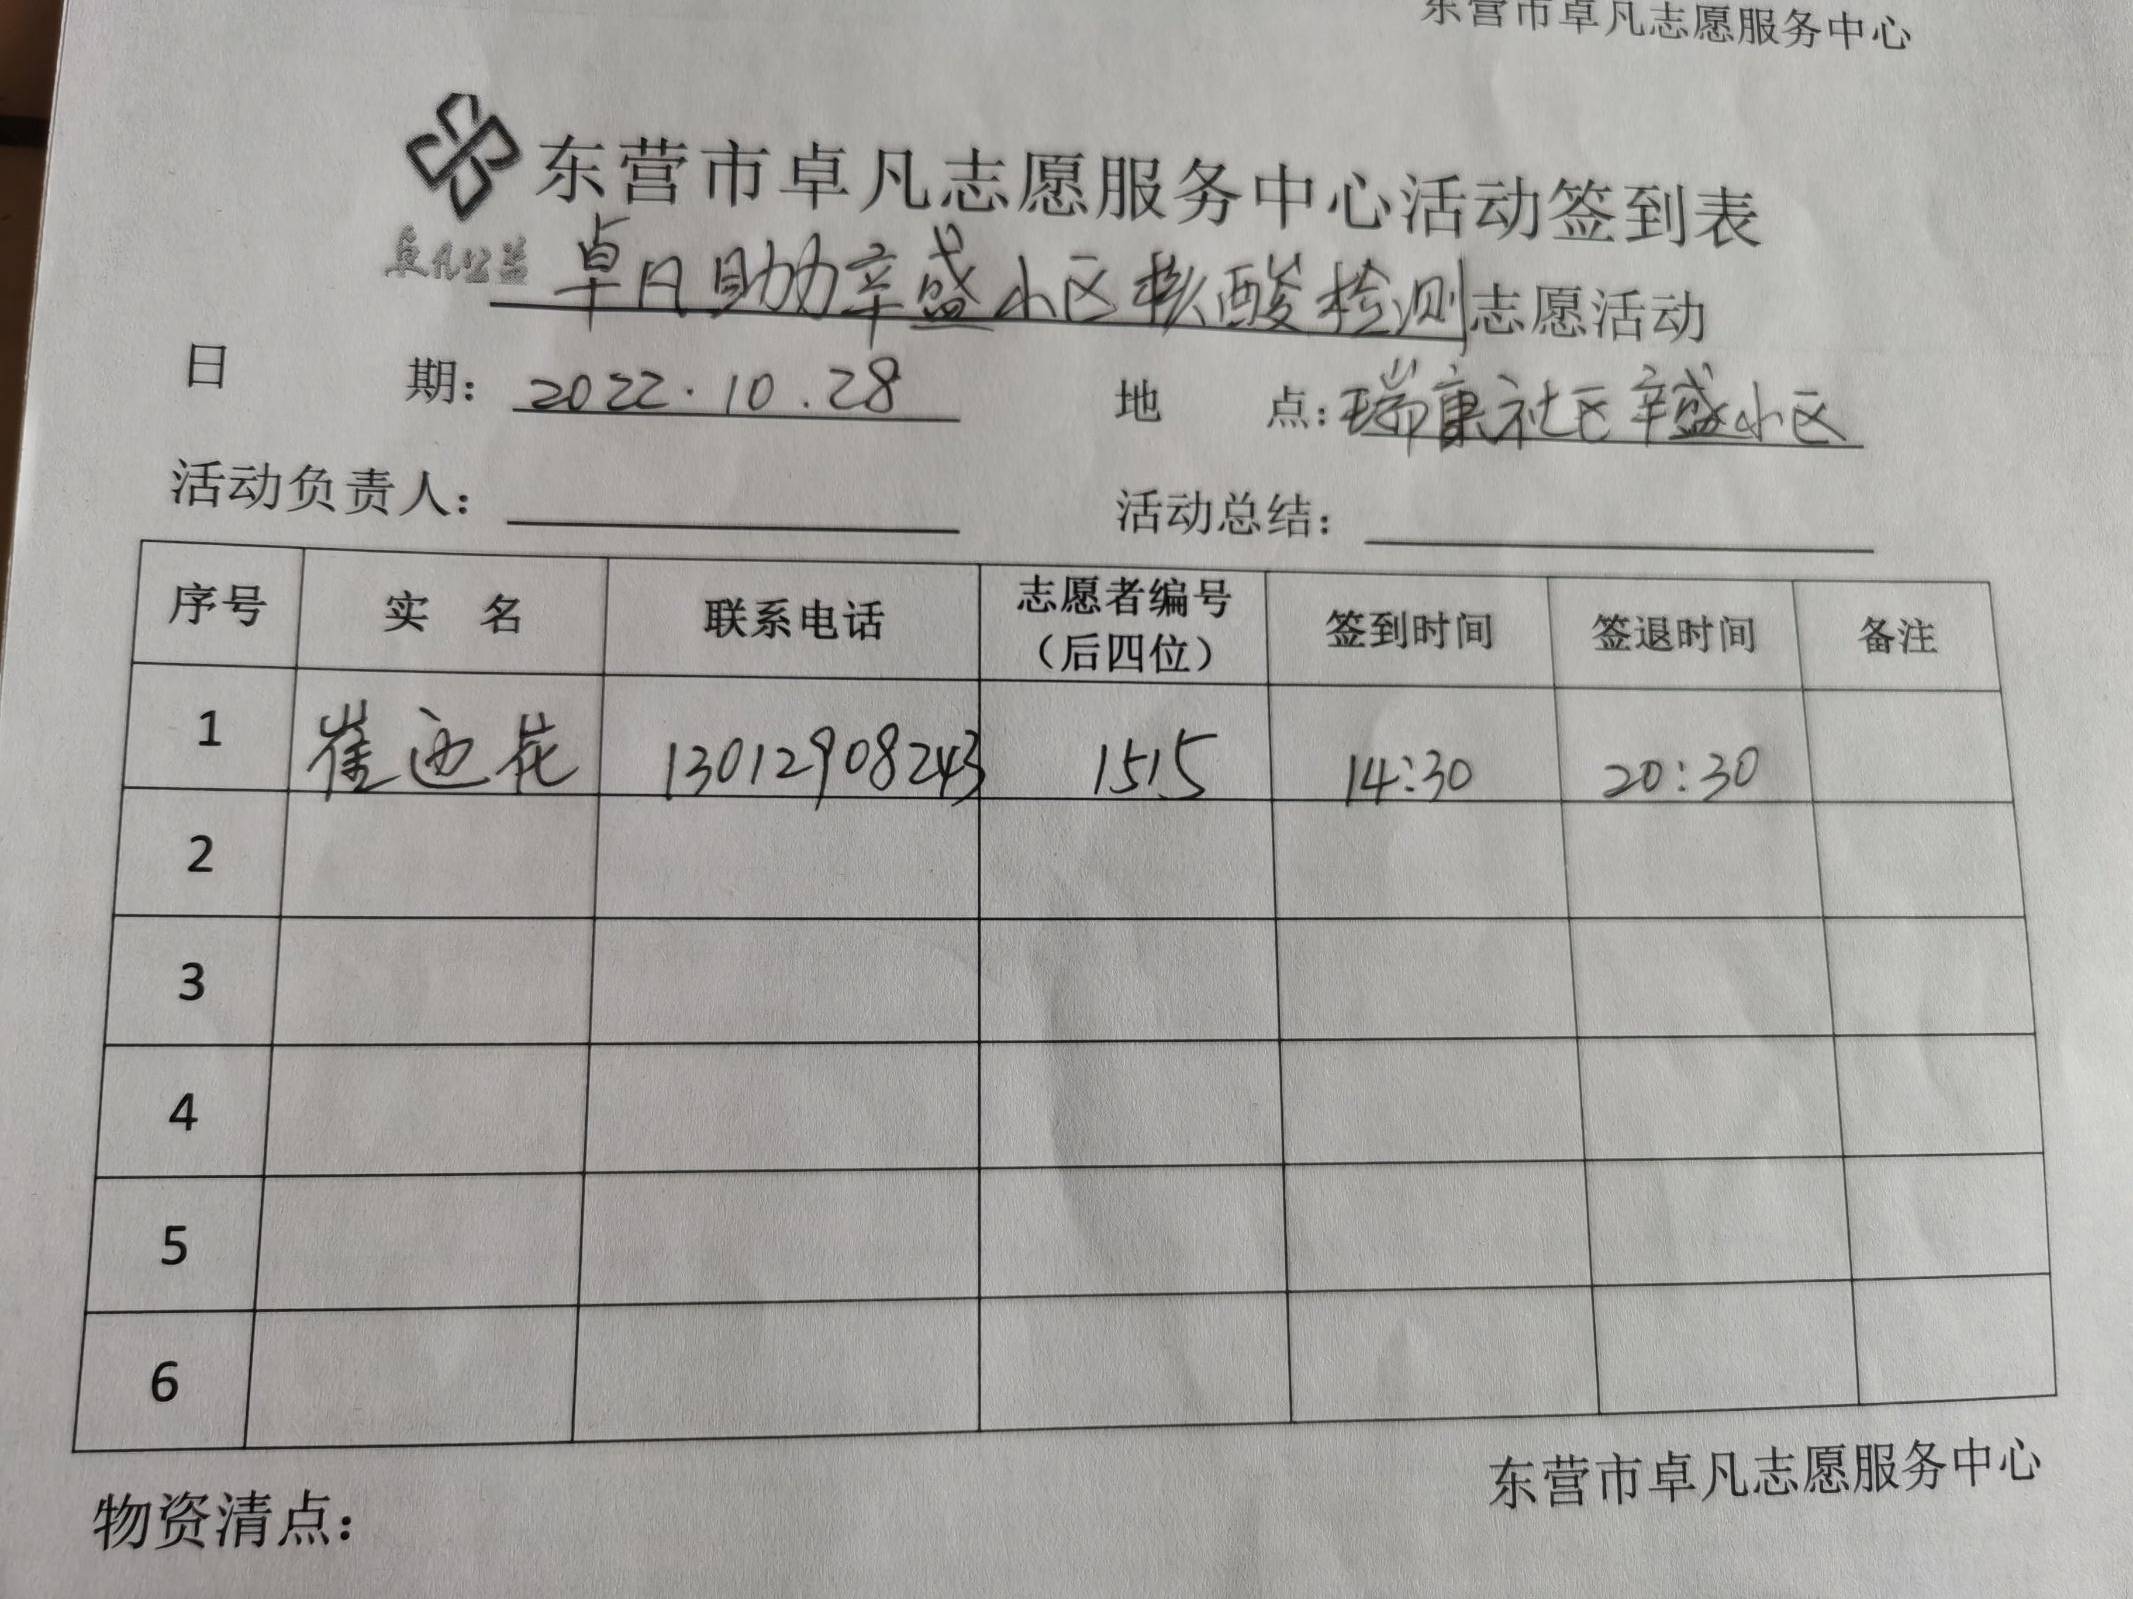 东营市卓凡志愿服务中心
东营市卓凡志愿服务中心活动签到表
卓凡公益
卓凡助力辛盛小区核酸检测志愿活动
日 期：2022.10.28 地 点：瑞康社区辛盛小区
活动负责人： 活动总结：
序号 实 名 联系电话 志愿者编号（后四位） 签到时间 签退时间 备注
1 崔迎花 13012908243 1515 14:30 20:30
2
3
4
5
6
东营市卓凡志愿服务中心
物资清点：